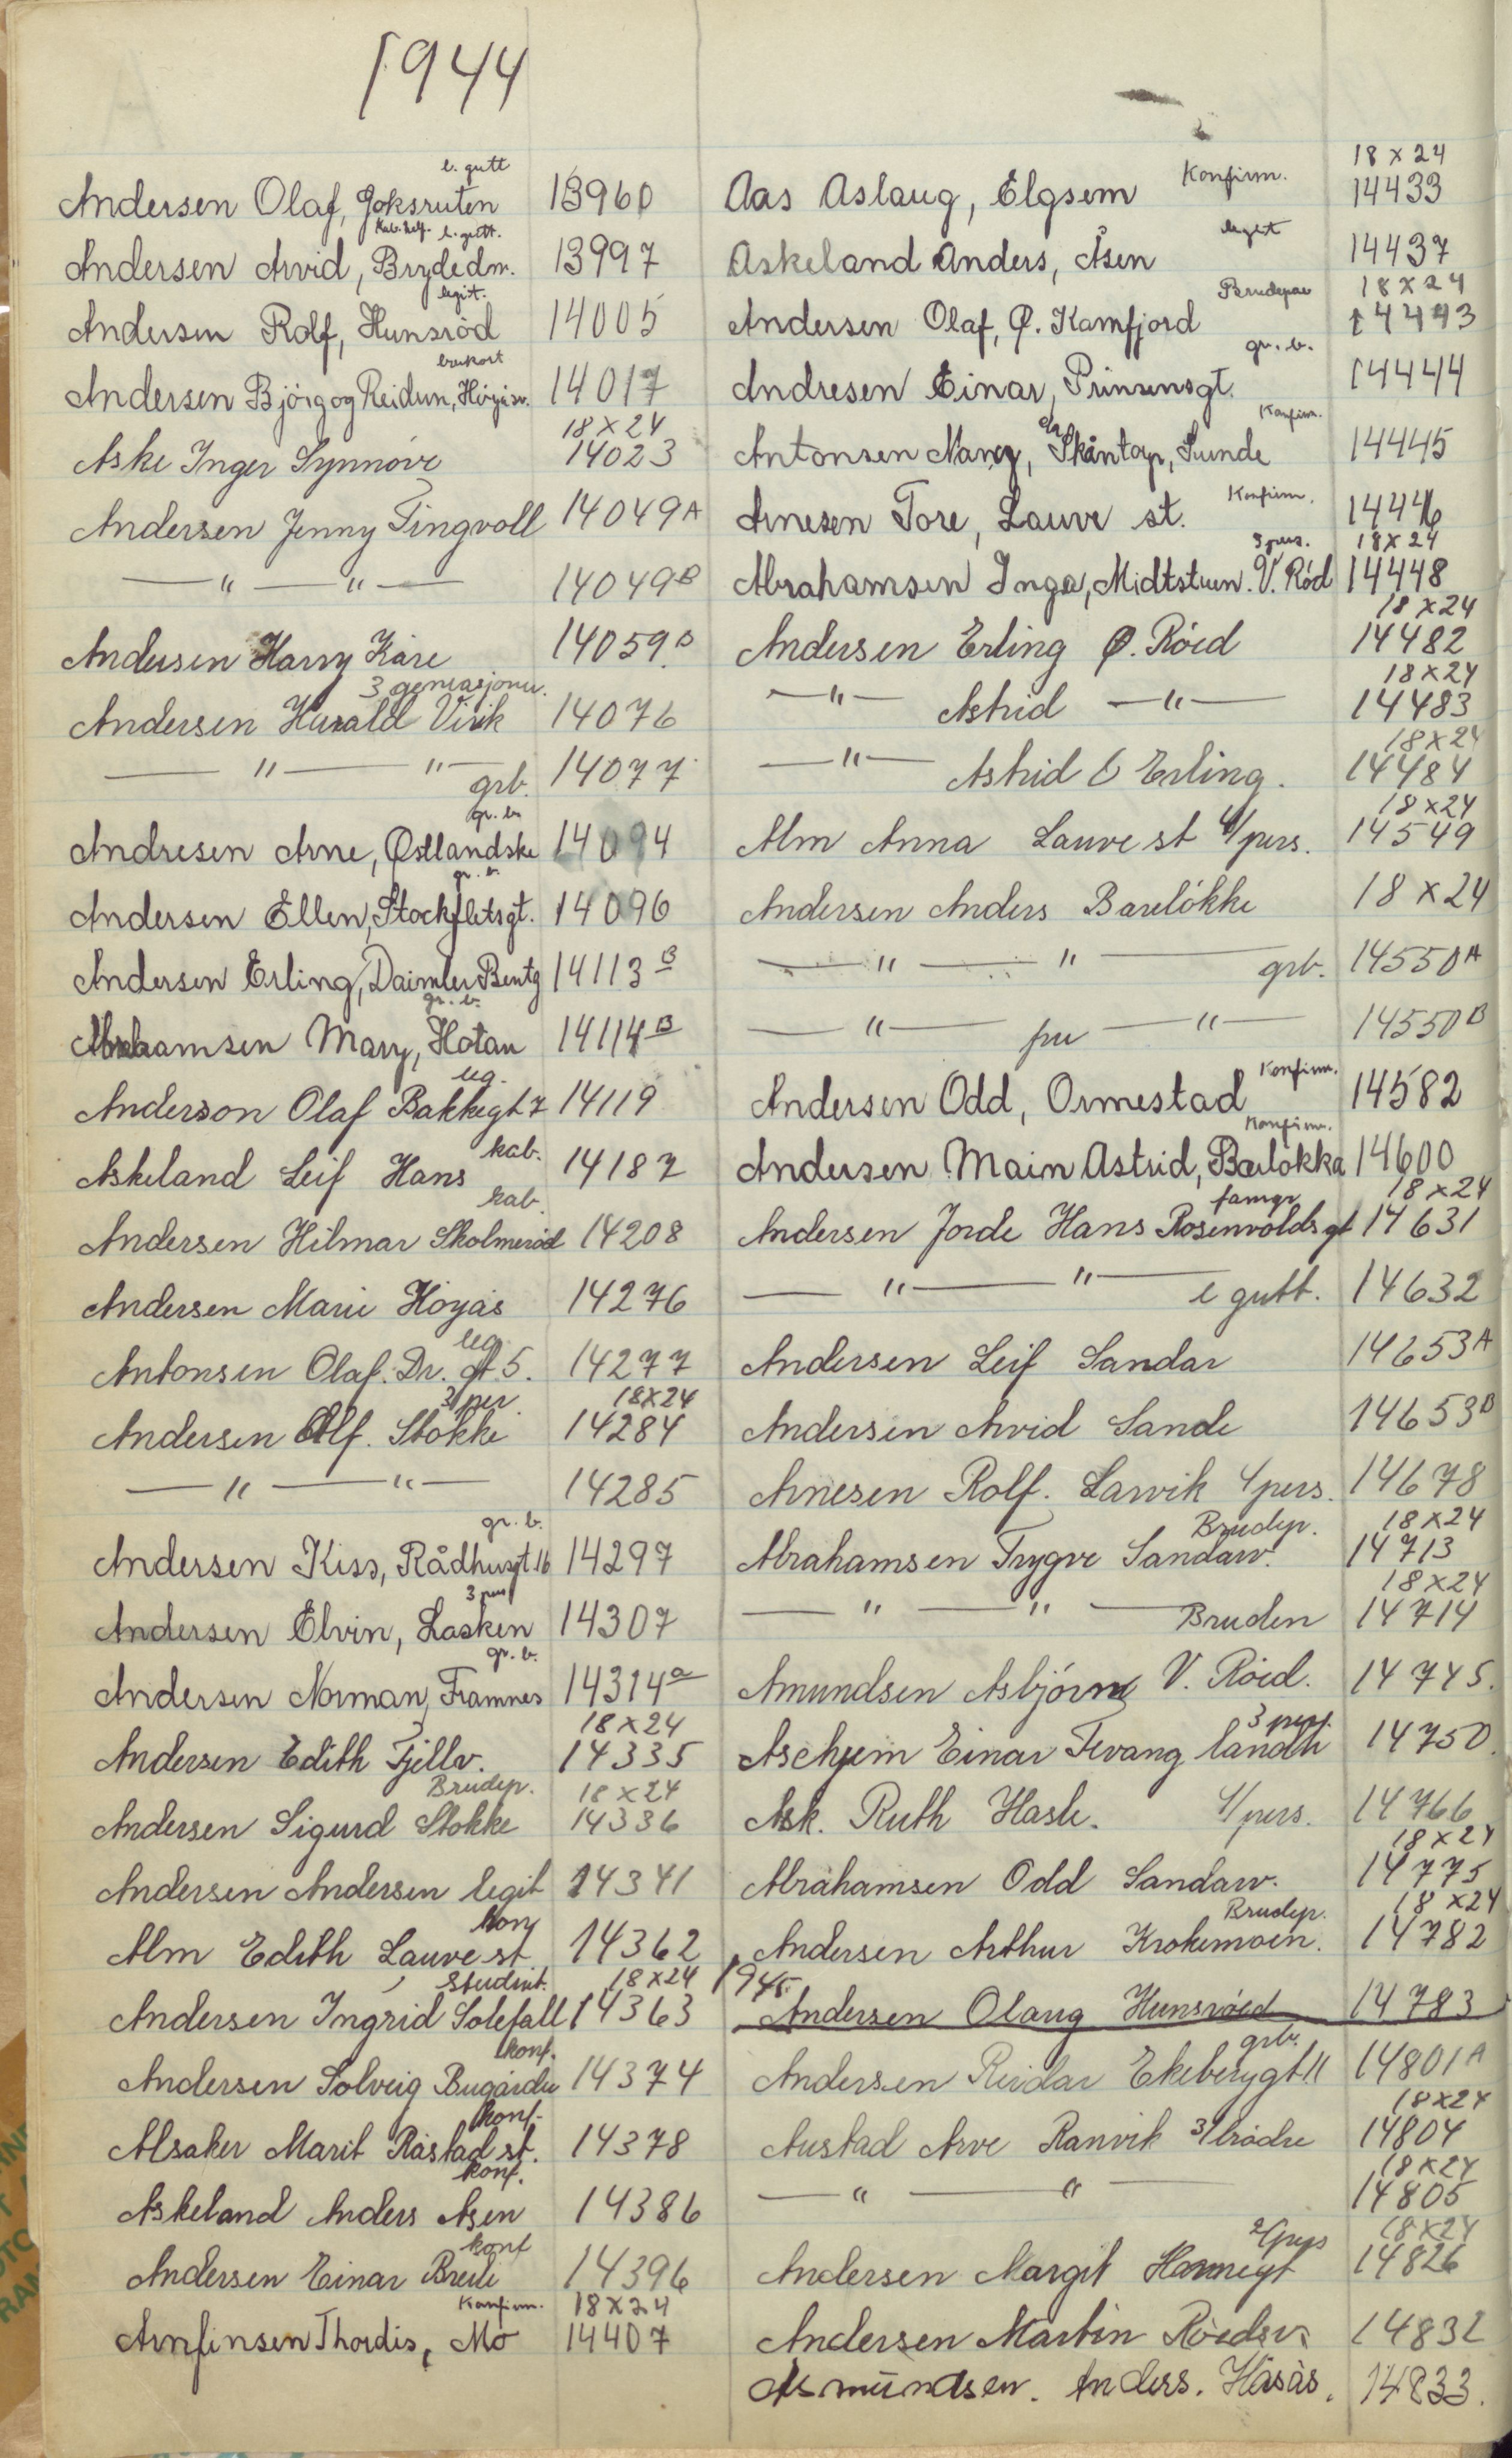 1944
l. gutt
Andersen Olaf, Goksruten 13960
Kab. helf. l. gutt.
Andersen Arvid, Brydedm. 13997
legit.
Andersen Rolf, Hunsröd 14005
brekort
Andersen Björg og Reidun, Höyåsv. 14017
18 x 24
Aske Inger Synnöve 14023
Andersen Jenny Tingvoll 14049 A
— " — " — 14049 B
Andersen Harry Kåre 14059 B
3 generasjoner.
Andersen Harald Virik 14076
— " — " — grb. 14077
gr. b.
Andresen Arne, Østlandske 14094
gr. b.
Andersen Ellen, Stockfletsgt. 14096
Andersen Erling, Daimler Bentz 14113 B
gr. b.
Abrahamsen Mary, Hotan 14114 B
leg.
Anderson Olaf Bakkegt 7 14119
kab.
Askeland Leif Hans 14187
kab.
Andersen Hilmar Skolmeröd 14208
Andersen Marie Höyås 14276
leg.
Antonsen Olaf. Dr. gt 5. 14277
3/per. 18x24
Andersen Alf. Stokke 14284
— " — " — 14285
gr. b.
Andersen Kiss, Rådhusgt 16 14297
3 pers
Andersen Elvin, Lasken 14307
gr. b.
Andersen Norman, Framnes 14314 a
18 x 24
Andersen Edith Fjellv. 14335
Brudep. 18 x 24
Andersen Sigurd Stokke 14336
Andersen Andersen legit 14341
konf
Alm Edith Lauve st. 14362
Student. 18x24
Andersen Ingrid Solefall 14363
konf.
Andersen Solveig Bugården 14374
konf.
Alsaker Marit Råstad st. 14378
konf.
Askeland Anders Åsen 14386
konf
Andersen Einar Breili 14396
Konfirm. 18 x 24
Arnfinsen Thordis, Mo 14407
Konfirm. 18 x 24
Aas Aslaug, Elgsem 14433
legit
Askeland Anders, Åsen 14437
Brudepar 18 x 24
Andersen Olaf, Ø. Kamfjord 14443
gr. b.
Andresen Einar, Prinsensgt. 14444
Konfirm.
Antonsen Nancy, Skåntorp, Sunde 14445
Konfirm.
Arnesen Tore, Lauve st. 14446
3 pers. 18x24
Abrahamsen Inga, Midtstuen. V. Röd 14448
18 x 24
Andersen Erling Ø. Röed 14482
18x24
— " — Astrid — " — 14483
18x24
— " — Astrid & Erling. 14484
18x24
Alm Anna Lauve st 4/pers. 14549
Andersen Anders Bareløkke 18 x 24
— " — " — grb. 14550 A
— " — fru — " — 14550 B
Konfirm.
Andersen Odd, Ormestad 14582
Konfirm.
Andersen Main Astrid, Bærløkka 14600
famgr. 18 x 24
Andersen Jorde Hans Rosenvoldsgt 14631
— " — " — l gutt. 14632
Andersen Leif Sandar 14653 A
Andersen Arvid Sande 14653 B
Arnesen Rolf. Larvik 4/pers. 14678
Brudep. 18 x 24
Abrahamsen Trygve Sandarv. 14713
18 x 24
— " — " — Bruden 14714
Amundsen Asbjörn V. Röed. 14745.
3 pers.
Aschjem Einar Tevang landh 14750.
Ask. Ruth Hasle. 4/pers. 14766
18 x 24
Abrahamsen Odd Sandarv. 14775
Brudep. 18 x 24
Andersen Arthur Krokemoen. 14782
1945.
Andersen Olaug Hunsröed 14783
grb.
Andersen Reidar Ekebergt 11 14801 A
18x24
Austad Arve Ranvik 3/brödre 14804
18x24
— " — " — 14805
2/pers 18x24
Andersen Margit Havnegt 14826
Andersen Martin Röedsv. 14832
Asmundsen. Anders. Håsås. 14833.